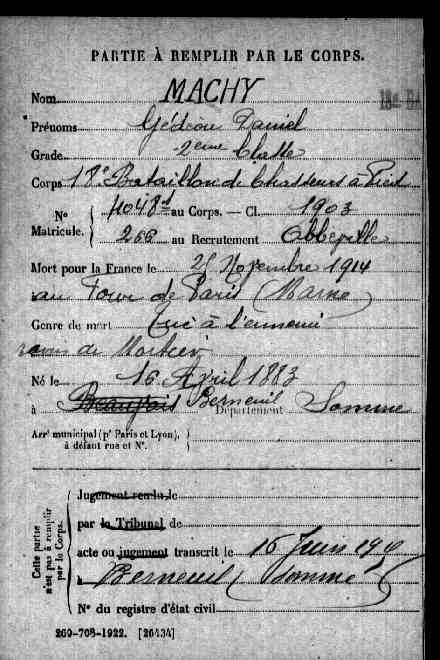 PARTIE À REMPLIR PAR LE CORPS.
Nom MACHY
Prénoms Gédéon Daniel
Grade 2ème Classe
Corps 18e Bataillon de Chasseurs à Pied
No Matricule. 4048 au Corps. — Cl. 1903
266 au Recrutement Abbeville
Mort pour la France le Novembre 1914
au Four de Paris (Marne)
Genre de mort Tué à l'ennemi
Né le 16 Avril 1883
à Beaufois Berneuil Département Somme
Arrt municipal (pr Paris et Lyon),
à défaut rue et No.
Cette partie
n'est pas à remplir
par le Corps.
Jugement rendu le
par le Tribunal de
acte ou jugement transcrit le 16 Juin
à Berneuil (Somme)
No du registre d'état civil
269-708-1922. [26434]